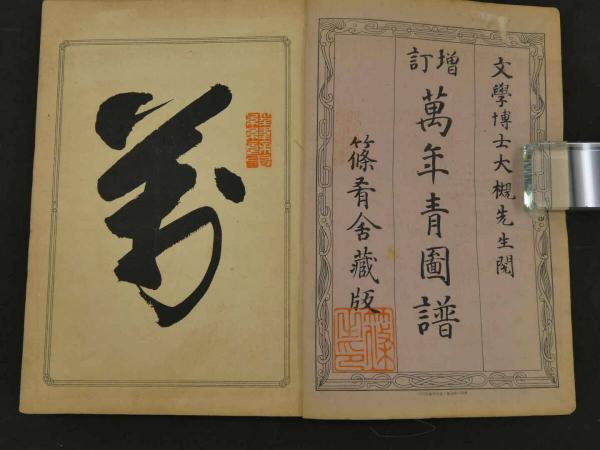 文學博士大槻先生閱
增訂
萬年青圖譜
篠肴舍藏版
萬